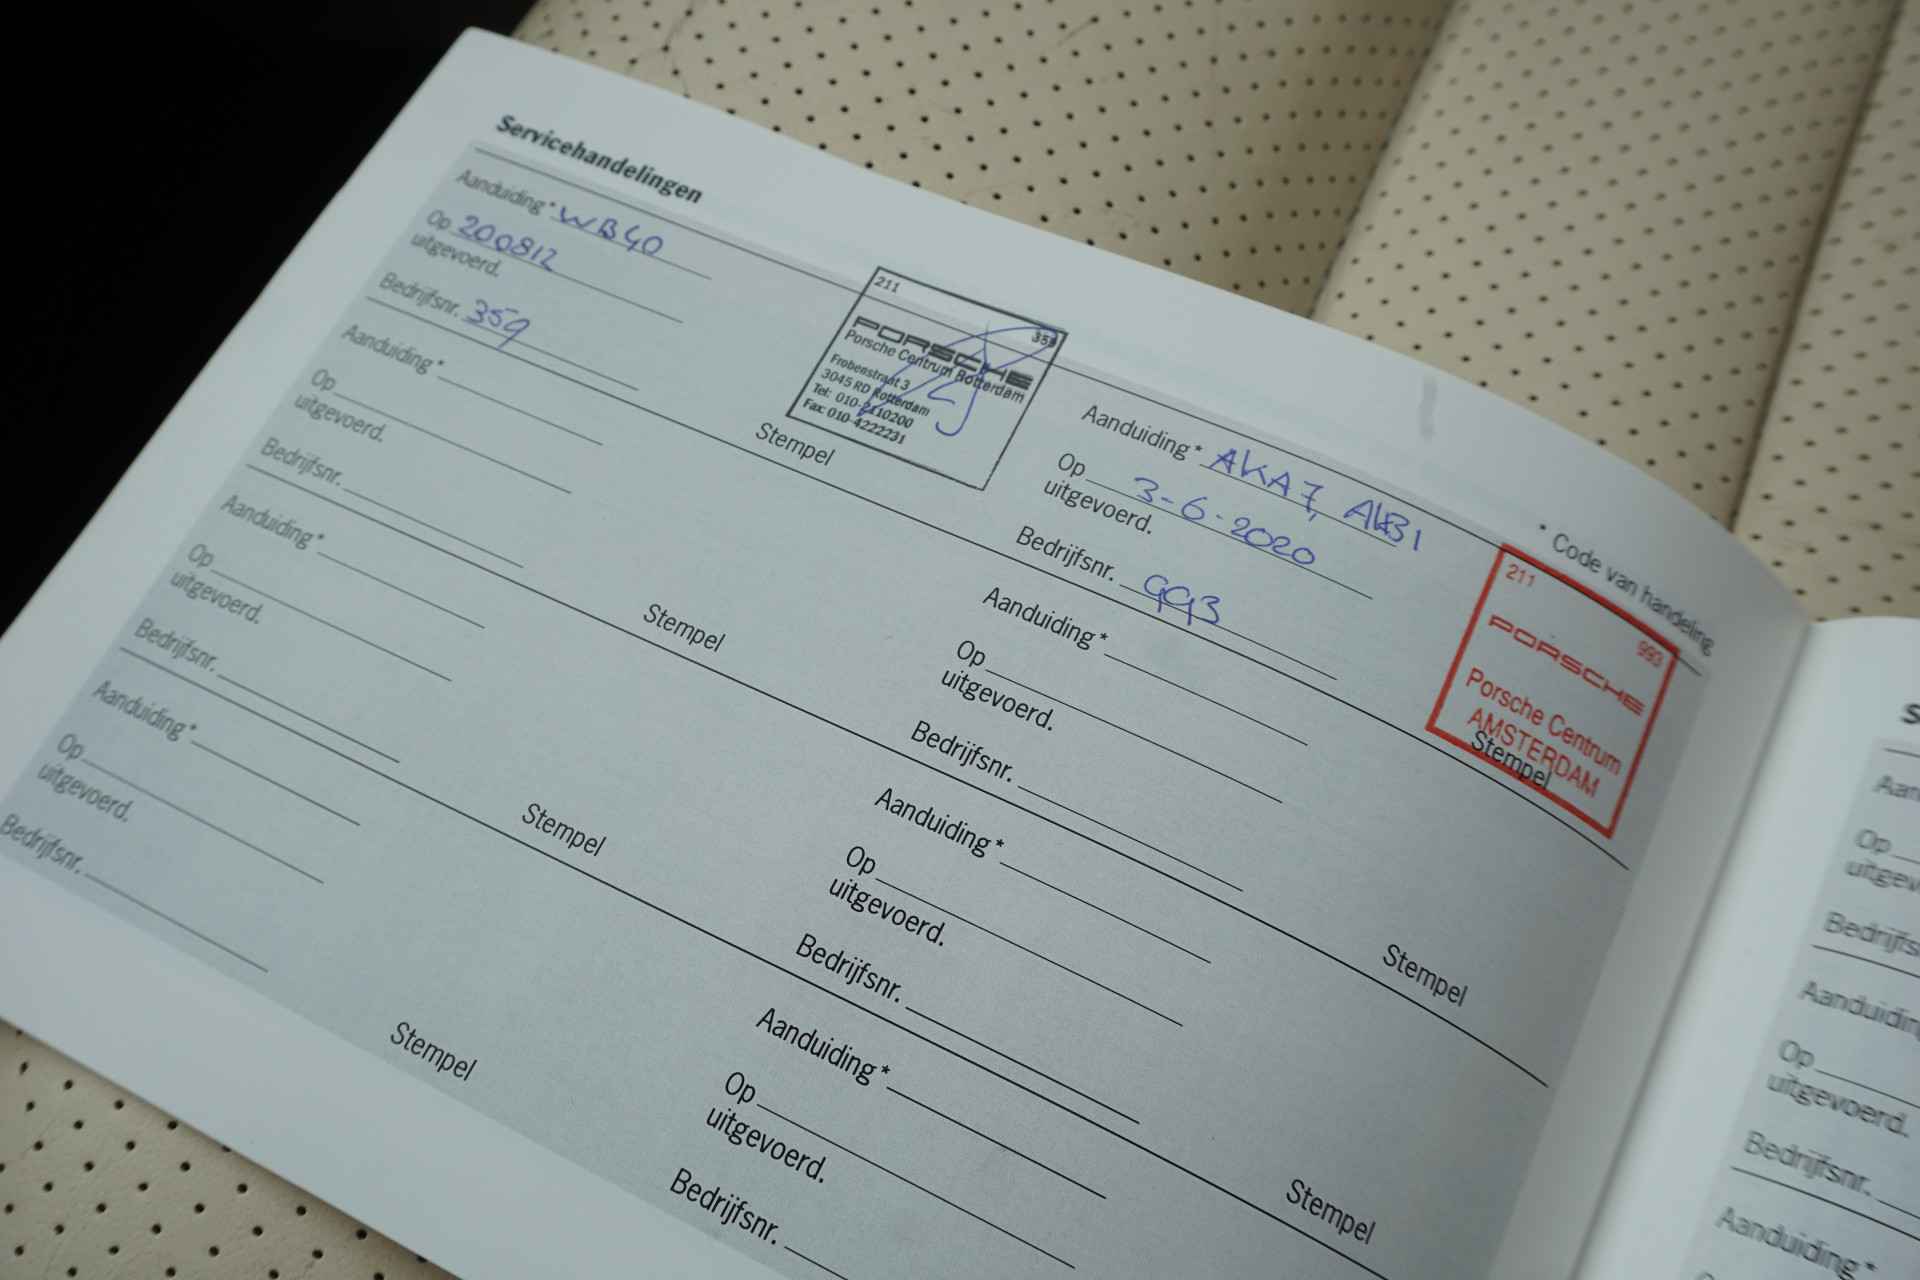 Servicehandelingen
Aanduiding * WB40
Op 200812
uitgevoerd.
Bedrijfsnr. 359
211
359
PORSCHE
Porsche Centrum Rotterdam
Frobenstraat 3
3045 RD Rotterdam
Tel: 010-2110200
Fax: 010-4222231
Stempel
Aanduiding *
Op
uitgevoerd.
Bedrijfsnr.
Stempel
Aanduiding *
Op
uitgevoerd.
Bedrijfsnr.
Stempel
Aanduiding *
Op
uitgevoerd.
Bedrijfsnr.
Stempel
* Code van handeling
Aanduiding * AKA7, AKB1
Op 3-6-2020
uitgevoerd.
Bedrijfsnr. 993
211
993
PORSCHE
Porsche Centrum
AMSTERDAM
Stempel
Aanduiding *
Op
uitgevoerd.
Bedrijfsnr.
Stempel
Aanduiding *
Op
uitgevoerd.
Bedrijfsnr.
Stempel
Aanduiding *
Op
uitgevoerd.
Bedrijfsnr.
Op
Op
uitgevoerd.
Bedrijfsnr.
Aanduiding *